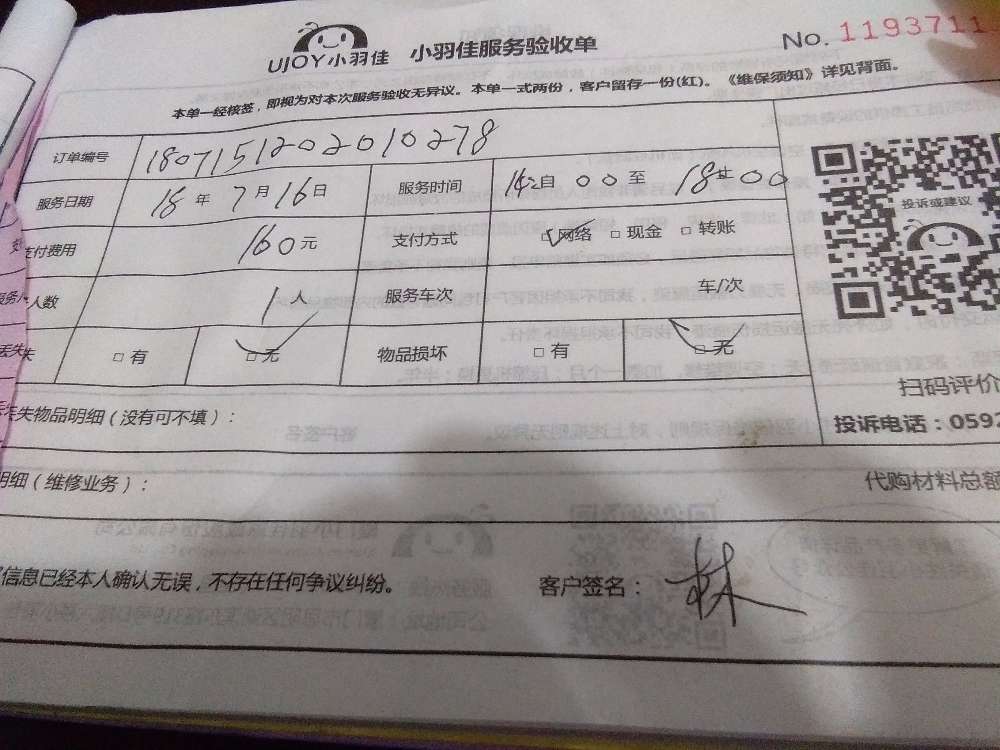 UJOY小羽佳 小羽佳服务验收单
No. 1193711
本单一经核签，即视为对本次服务验收无异议。本单一式两份，客户留存一份(红)。《维保须知》详见背面。
订单编号 1807151202010278
服务日期 18年7月16日 服务时间 14 自 00至 18 00
支付费用 160元 支付方式 □网络 □现金 □转账
人数 1人 服务车次 车/次
□有 □无 物品损坏 □有 □无
投诉或建议
扫码评价
投诉电话：0592
丢失物品明细（没有可不填）：
明细（维修业务）： 代购材料总额
信息已经本人确认无误，不存在任何争议纠纷。 客户签名： 林